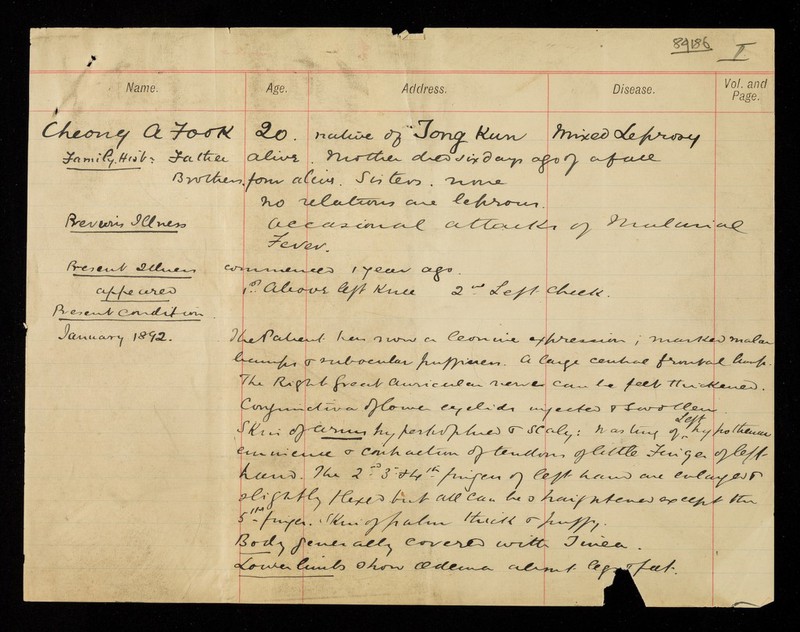 84186 II
Name. Age. Address. Disease. Vol. and Page.
Cheong A Fook 20. native of "Tong Kun Mixed Leprosy
Family Hist: Father alive. Mother died six days ago of a fall
Brothers, four alive. Sisters. none
no relations are leprous.
Previous Illness Occasional attacks of Malarial
Fever.
Present Illness commenced 1 year ago.
appeared 1st Above left Knee 2nd Left Cheek.
Present condition
January 1892. The Patient has now a leonine expression; marked malar
humps & subocular puffiness. A large central frontal hump.
The Right Great Auricular nerve can be felt thickened.
Conjunctiva of lower eyelids injected & swollen.
Skin of arms hypertrophied & scaly: Wasting of Left hypothenar
eminence & contraction of tendons of little Finger of left
hand. The 2nd 3rd & 4th fingers of left hand are enlarged &
slightly flexed but all can be straightened except the
5th finger. Skin of palm thick & puffy.
Body generally covered with Tinea.
Lower limbs show Œdema about legs & feet.